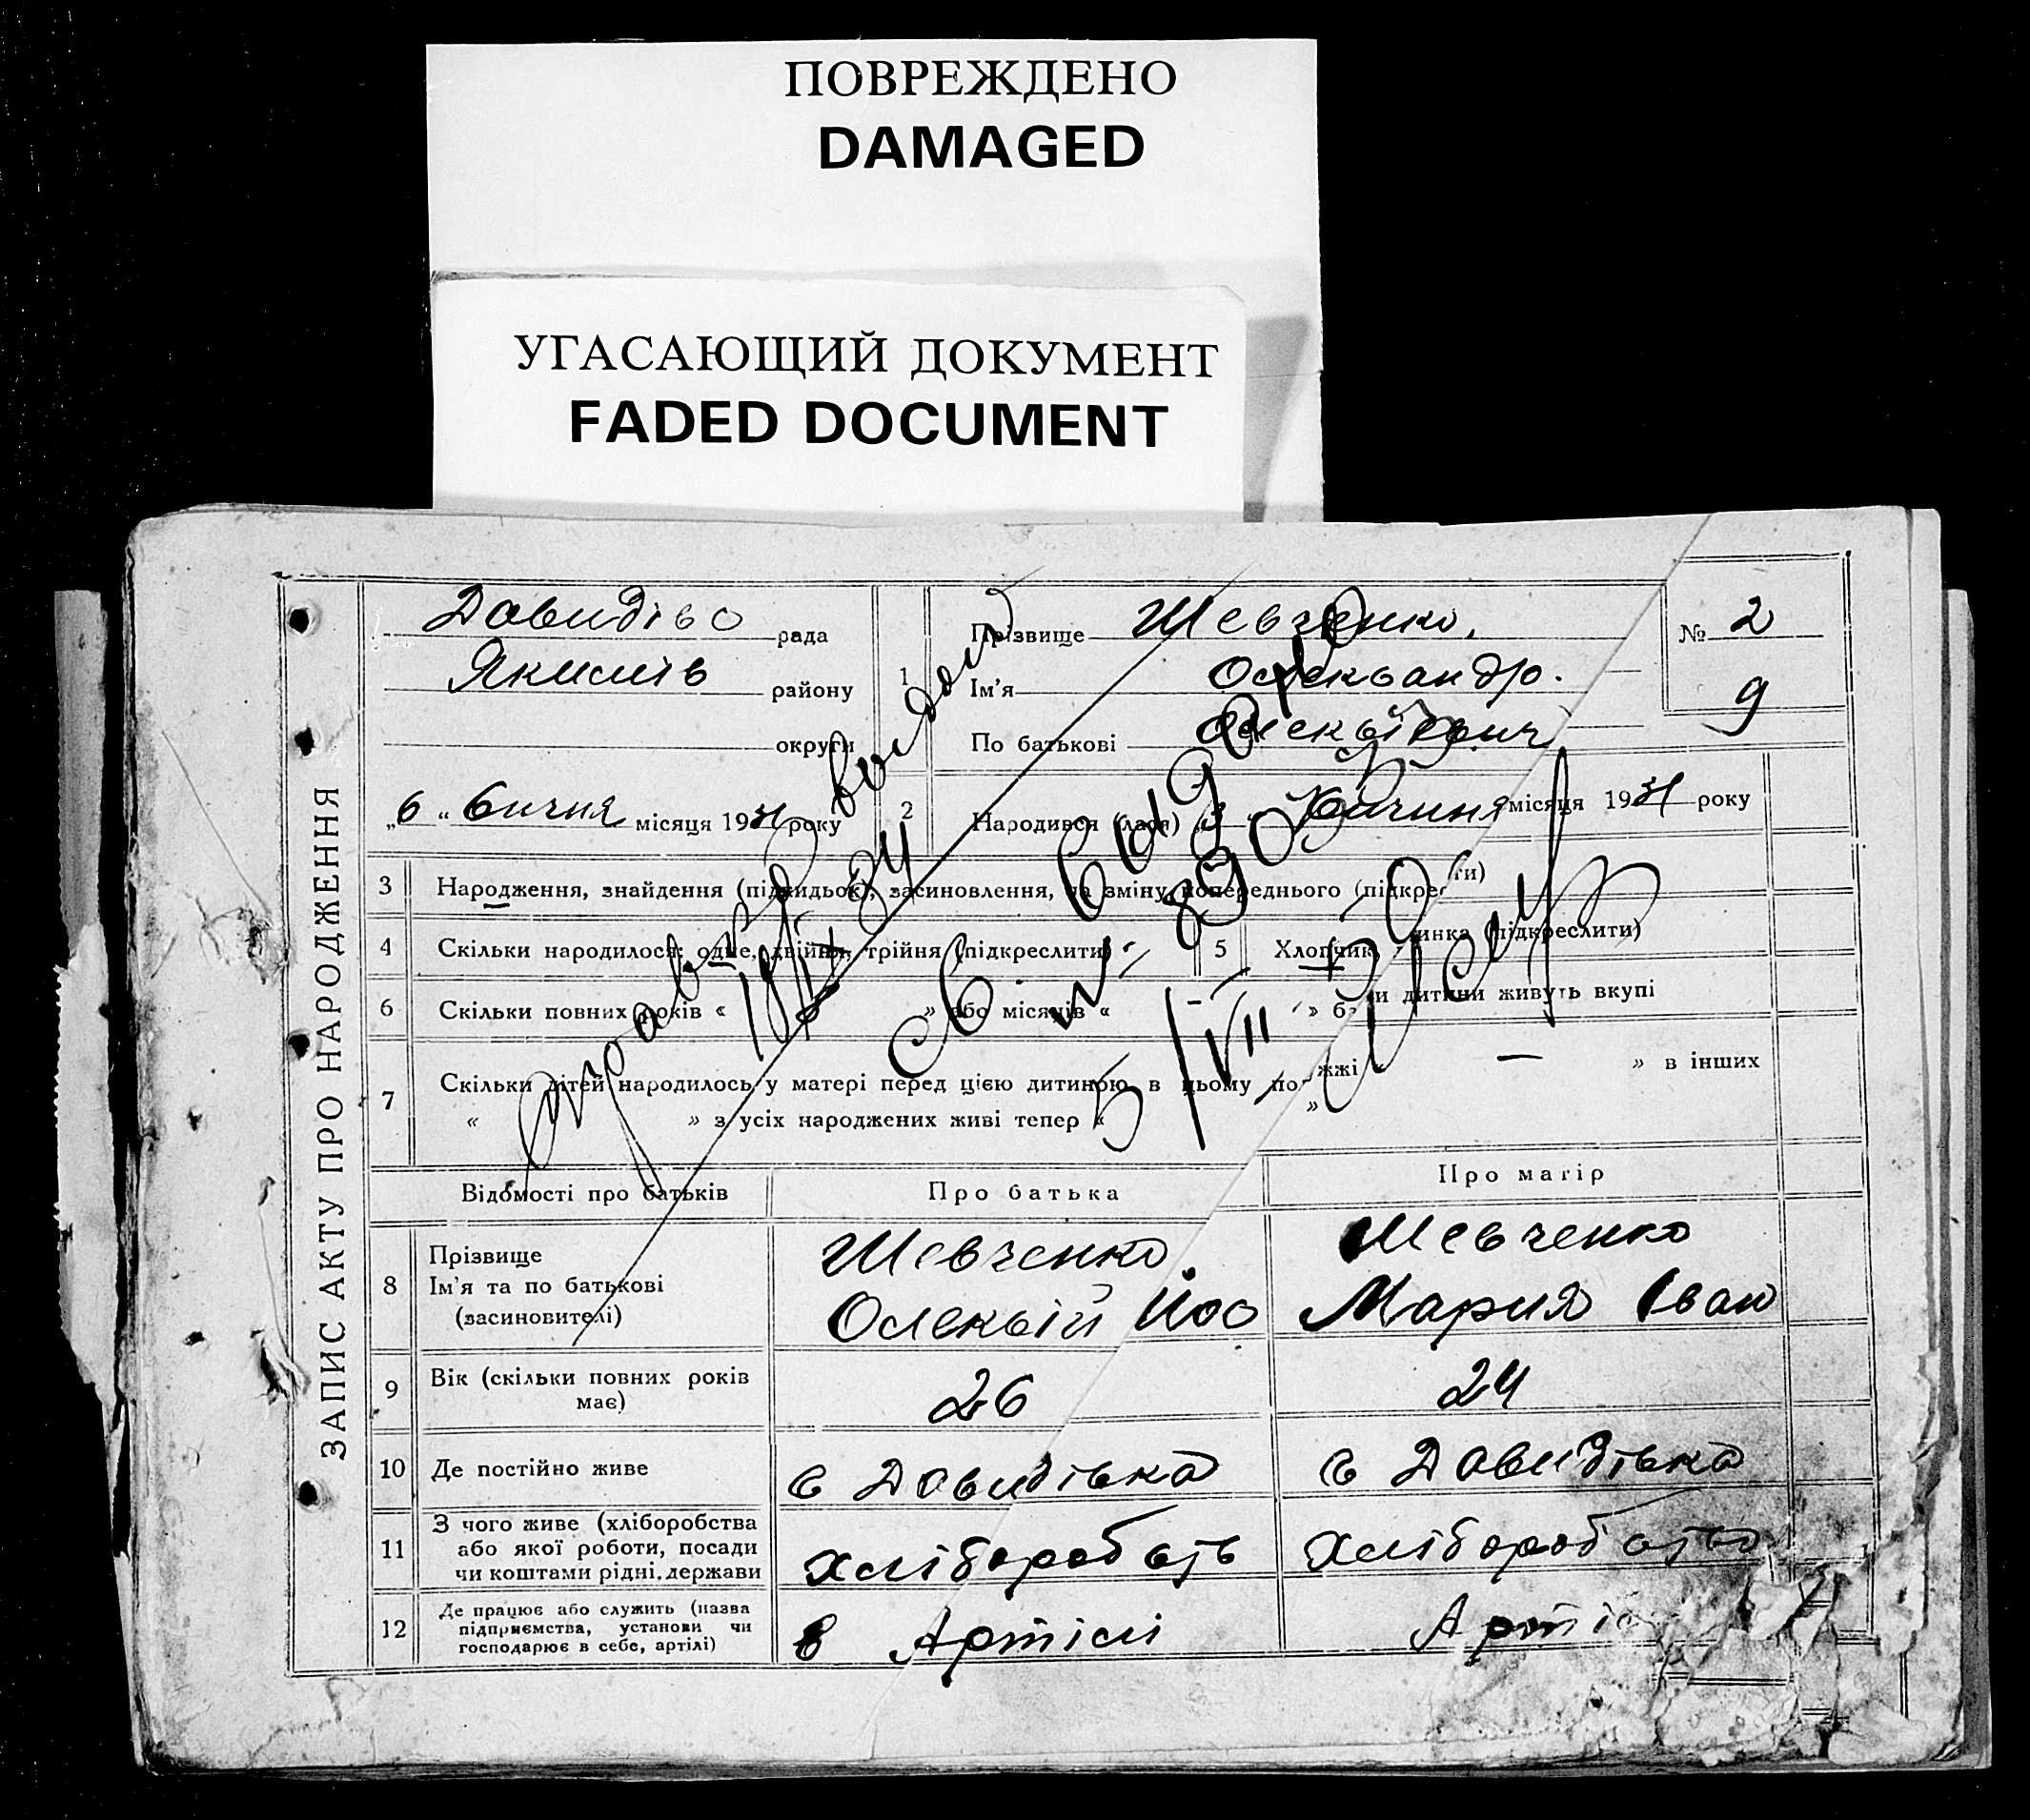 ПОВРЕЖДЕНО
DAMAGED
УГАСАЮЩИЙ ДОКУМЕНТ
FADED DOCUMENT
ЗАПИС АКТУ ПРО НАРОДЖЕННЯ
Давидівс рада
Якимів району
округи
„6“ січня місяця 1931 року
1 Прізвище Шевченко,
Ім'я Олександр.
По батькові Олексійович
№ 2
9
2 Народився (лася) місяця 1931 року
3 Народження, знайдення (підкидьок), засиновлення, на зміну попереднього (підкрес ти)
4 Скільки народилося: одне, двійня, трійня (підкреслити)
5 Хлопчик, инка (підкреслити)
6 Скільки повних років « » або місяців « » ба и дитини живуть вкупі
7 Скільки дітей народилось у матері перед цією дитиною в цьому по жжі — » в інших
« » з усіх народжених живі тепер « »
справка выдана
18/IX 34
Св. выдано
№ 8903
5/VII 39
Відомості про батьків
Про батька
Про матір
8 Прізвище
Ім'я та по батькові
(засиновителі)
Шевченко
Олексій Йос
Шевченко
Мария Іван
9 Вік (скільки повних років має)
26
24
10 Де постійно живе
с Давидівка
с Давидівка
11 З чого живе (хліборобства
або якої роботи, посади
чи коштами рідні, держави
хліборобств
хліборобство
12 Де працює або служить (назва
підприємства, установи чи
господарює в себе, артілі)
в Артілі
Арті